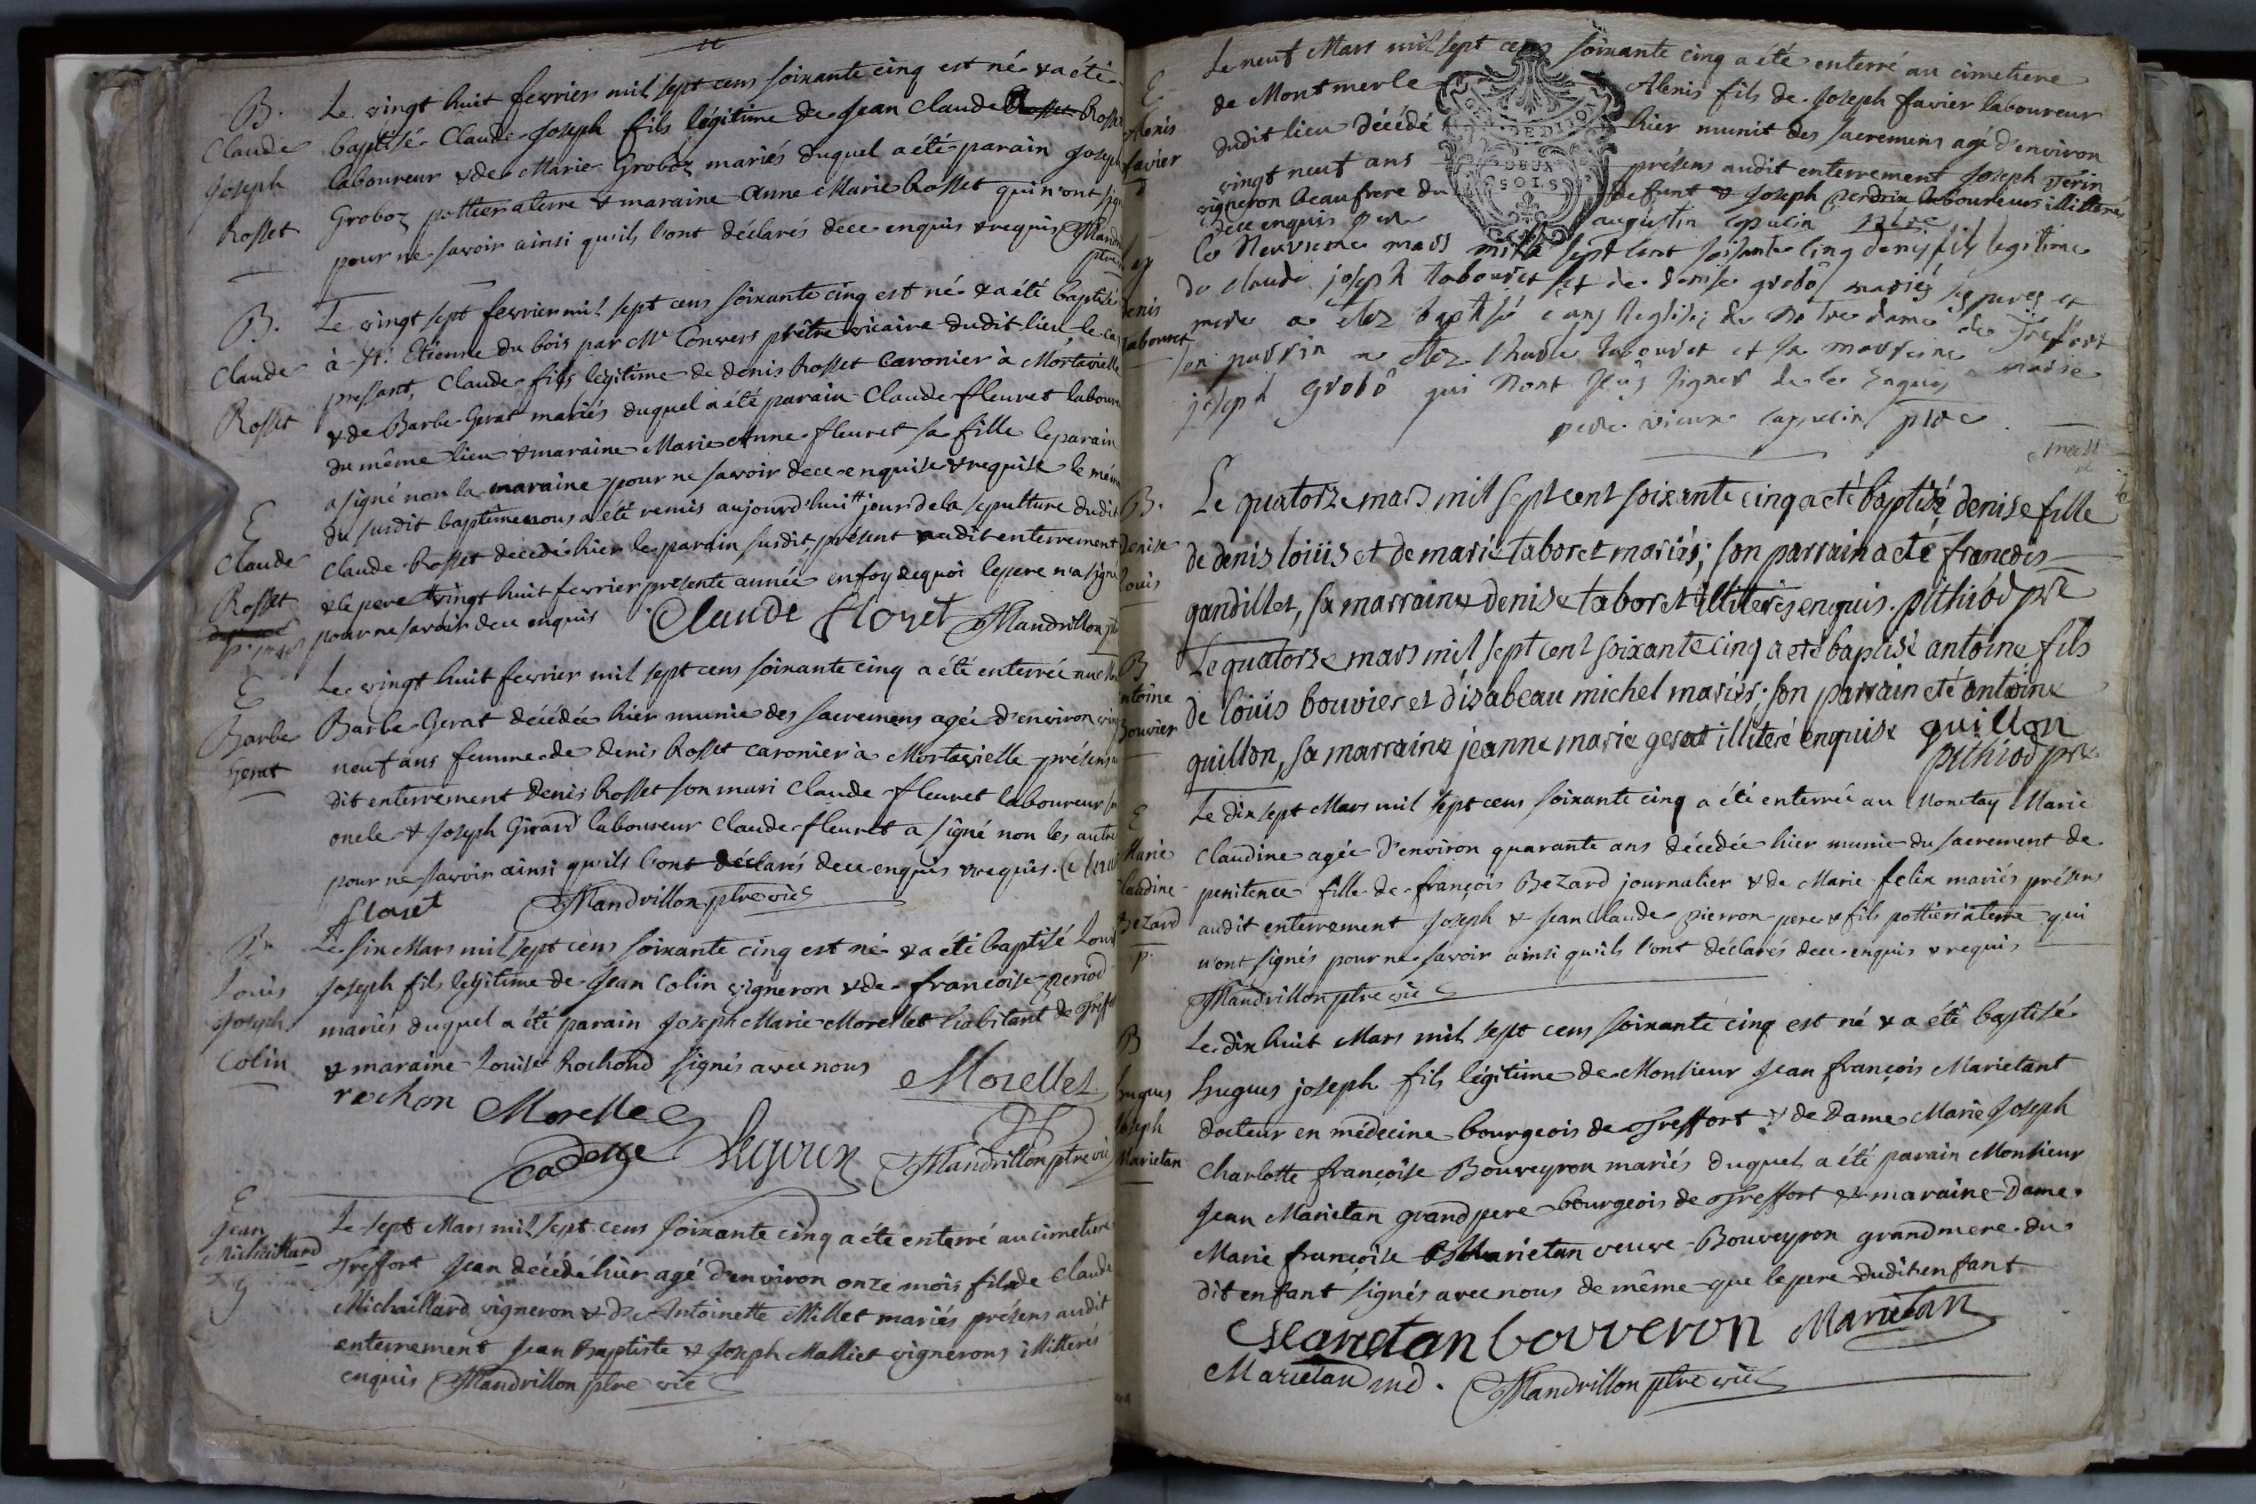 B.
Claude
Joseph
Rosset
Le vingt huit fevrier mil sept cens soixante cinq est né & a été
baptisé Claude Joseph fils légitime de Jean Claude Rosset
laboureur & de Marie Groboz mariés duquel a été parain Joseph
Groboz pottier a terre & maraine Anne Marie Rosset qui n'ont
pour ne savoir ainsi qu'ils l'ont déclarés de ce enquis & requis
B.
Claude
Rosset
Le vingt sept fevrier mil sept cens soixante cinq est né & a été baptisé
à St. Etienne du bois par Mr. Convers prêtre vicaire dudit lieu le cas
pressant, Claude fils légitime de denis Rosset caronier à Mortarielle
& de Barbe Gerat mariés duquel a été parain Claude fleuret
du même lieu & maraine Marie Anne fleuret sa fille le parain
a signé non la maraine pour ne savoir de ce enquise & requise le
du susdit baptême nous a été remis aujourd'hui jour de la sepulture dudit
E
Claude
Rosset
Claude Rosset décédé hier le parain susdit présent audit enterrement
& le pere vingt huit fevrier presente année en foy de quoi le pere n'a signé
pour ne savoir de ce enquis Claude floret Mandrillon
E
Barbe
Gerat
Le vingt huit fevrier mil sept cens soixante cinq a été enterrée
Barbe Gerat décédée hier munie des sacremens agée d'environ
neuf ans femme de denis Rosset caronier à Mortarielle présens
dit enterrement denis Rosset son mari Claude fleuret laboureur
oncle & Joseph Girard laboureur Claude fleuret a signé non les
pour ne savoir ainsi qu'ils l'ont déclarés de ce enquis & requis.
floret Mandrillon ptre vic
Louis
Joseph
Colin
Le six Mars mil sept cens soixante cinq est né & a été baptisé Louis
Joseph fils légitime de Jean Colin vigneron & de françoise
mariés duquel a été parain Joseph Marie Morellet habitant de
& maraine Louise Rochond signés avec nous
rochon Morellet Morellet
Mandrillon ptre vic
E
Jean
Michaillard
Le sept Mars mil sept cens soixante cinq a été enterré au cimetiere
Treffort Jean décédé hier agé d'environ onze mois fils de Claude
Michaillard vigneron & d'Antoinette Millet mariés présens audit
enterrement Jean Baptiste & Joseph Malliet vignerons illitterés
enquis Mandrillon ptre vic
E
Alexis
favier
Le neuf Mars mil sept cens soixante cinq a été enterré au cimetiere
de Montmerle Alexis fils de Joseph favier laboureur
dudit lieu décédé hier munit des sacremens agé d'environ
vingt neuf ans présens audit enterrement Joseph
vigneron beaufrere du deffunt & Joseph laboureurs illitterés
de ce enquis pere augustin capucin
DEUX
SOLS
denis
tabouret
Le neuvieme mars mille sept cent soisante cinq denis fils legitime
de claude joseph tabouret et de denise grobô mariés ses peres et
mere a etez baptisé dans leglise de notre dame de Treffort
son parrin a etez tabouret et sa marreine marie
joseph grobô qui nont signer de ce enquis
pere vieux cappucin
B.
Denise
Louis
Le quatorze mars mil sept cent soixante cinq a eté baptisé, denise fille
de denis loüis et de marie taboret mariés; son parrain a eté francois
gandillet, sa marraine denise taboret illiterés enquis. pithiod pre
B
antoine
Bouvier
Le quatorze mars mil sept cent soixante cinq a eté baptisé antoine fils
de loüis bouvier et d'isabeau michel mariés; son parrain eté antoine
guillon, sa marraine jeanne marie gerat illiteré enquise guillon
pithiod pre
E
Marie
Claudine
Bezard
p.
Le dix sept Mars mil sept cens soixante cinq a été enterrée au Monetay Marie
Claudine agée d'environ quarante ans décédée hier munie du sacrement de
penitence fille de françois Bezard journalier & de Marie felix mariés présens
audit enterrement Joseph & Jean Claude Pierron pere & fils pottiers a terre qui
n'ont signés pour ne savoir ainsi qu'ils l'ont déclarés de ce enquis & requis
Mandrillon ptre vic
B
hugues
Joseph
Marietan
Le dix huit Mars mil sept cens soixante cinq est né & a été baptisé
hugues joseph fils légitime de Monsieur Jean françois Marietant
docteur en médecine bourgeois de Treffort & de Dame Marie Joseph
Charlotte françoise Bouveyron mariés duquel a été parain Monsieur
Jean Marietan grand pere bourgeois de Treffort & maraine Dame
Marie françoise Marietan veuve Bouveyron grand mere du
dit enfant signés avec nous de même que le pere dudit enfant
Maretan bouveron Marietan
Marietan md. Mandrillon ptre vic